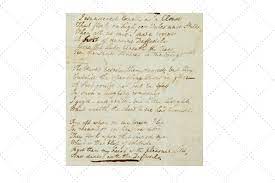 I wandered lonely as a Cloud
That floats on high o'er Vales and Hills
When all at once I saw a
A host of dancing Daffodils
the Lake, beneath the trees
Ten thousand dancing in
The waves beside them danced, but they
the sparkling waves in glee
not but be gay
In such a laughing company
I gaz'd and gaz'd but little thought
What wealth the shew to me had brought
For oft when on my couch I lie
In vacant, or in pensive mood
They flash upon that inward eye
Which is the bliss of solitude
And then my heart with pleasure fills
And dances with the Daffodils